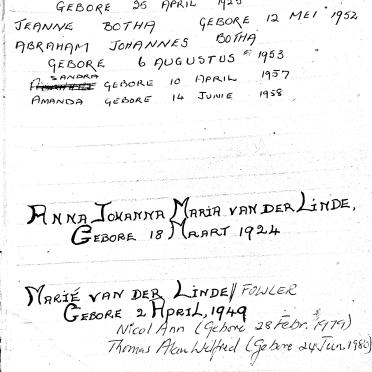 GEBORE 25 APRIL 1925
JEANNE BOTHA GEBORE 12 MEI 1952
ABRAHAM JOHANNES BOTHA
GEBORE 6 AUGUSTUS 1953
SANDRA
GEBORE 10 APRIL 1957
AMANDA GEBORE 14 JUNIE 1958
ANNA JOHANNA MARIA VAN DER LINDE,
GEBORE 18 MAART 1924
MARIÉ VAN DER LINDE // FOWLER
GEBORE 2 APRIL, 1949
Nicol Ann (Gebore 28 Febr. 1979)
Thomas Alan Wilfred (Gebore 24 Jun. 1980)